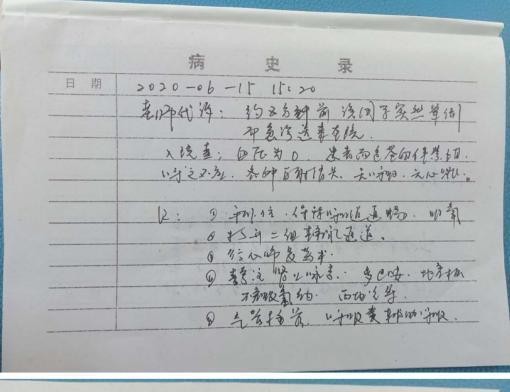 病 史 录
日 期
2020-06-15 15:20
老师代诉: 约五分钟前 该同学突然晕倒
即急诊送来我院.
入院查: 血压为0, 患者面色苍白伴紫绀,
呼之不应, 各种反射消失, 无呼吸, 无心跳.
R: ① 平卧位, 保持呼吸道通畅, 吸氧
② 打开二组静脉通道.
③ 行心肺复苏术.
④ 静注 肾上腺素, 多巴胺, 地塞米松
碳酸氢钠, 西地兰等
⑤ 气管插管, 呼吸囊辅助呼吸.